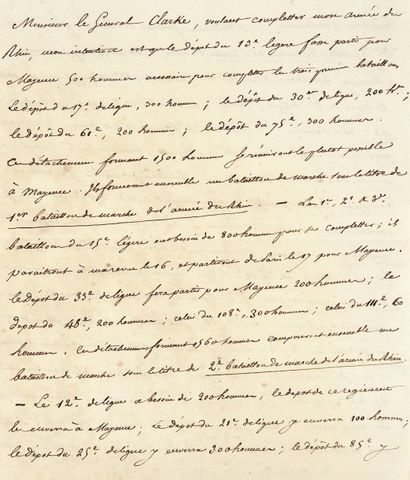 Monsieur le General Clarke, voulant completter mon armée du
Rhin, mon intention est que le dépôt du 13e legere fasse partir pour
Mayence 500 hommes necessaires pour completter les trois premiers bataillons,
Le dépôt du 17e de ligne, 300 hommes; le dépôt du 30e de ligne, 200 hes;
le dépôt du 61e, 200 hommes; le dépôt du 75e, 300 hommes.
Ces detachemens formant 1500 hommes se réuniront le plutot possible
à Mayence. Ils formeront ensemble un bataillon de marche sous le titre de
1er bataillon de marche de l'armée du Rhin. — Les 1er, 2e & 3e
bataillons du 15e légere ont besoin de 800 hommes pour se completter; ils
paraitront à la revue le 16, et partiront de Paris le 17 pour Mayence.
le depot du 33e de ligne fera partir pour Mayence 200 hommes; le
depot du 48e, 200 hommes; celui du 108e, 300 hommes; celui du 111e, 60
hommes. Ces detachemens formant 1560 hommes composeront ensemble un
bataillon de marche sous le titre de 2e bataillon de marche de l'armée du Rhin.
— Le 12e de ligne a besoin de 200 hommes, le depot de ce régiment
les enverra à Mayence; le dépôt du 21e de ligne y enverra 100 hommes;
le dépôt du 25e de ligne y enverra 300 hommes; le dépôt du 85e y